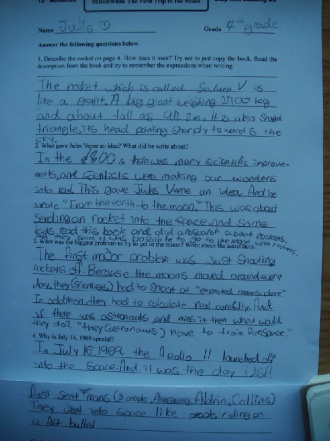 Moonwalk: The First Trip to the Moon
Name Julis ♡ Grade 4th grade
Answer the following questions below.
1. Describe the rocket on page 4. How does it look? Try not to just copy the book. Read the
description from the book and try to remember the expressions when writing.
The rocket which is called Saturn V is
like a giant. A big giant weighing 2700 kg
and about tall as 97.2m. It is also shaped
triangle, its head pointing sharply towards the
sky.
2. What gave Jules Verne an idea? What did he write about?
In the 1800s there was many scientific improve-
ments, and scientists was making our wonders
into real. This gave Jules Verne an idea. And he
wrote "From the earth to the moon." This was about
sending an rocket into the space. and some
kids read this book and did a research about rockets.
possible to go to the moon with rockets.
3. What was the biggest problem to fly to get to the moon? Write about the
The first major problem was just shooting
rockets off. Because the moons moved around every
day, they (scientists) had to shoot at "expected moon's place".
In addition they had to calculate real carefully. And
if there was astronauts and miss it then what would
they do? "they (astronauts) have to train for space."
4. Why is July 16, 1969 special?
In July 16, 1969, the Apollo 11 launched off
into the space. And 11 was the day USA
first sent mans (3 people, Armstrong, Aldrin, Collins)
They went into space like people riding on
a fast bullet.